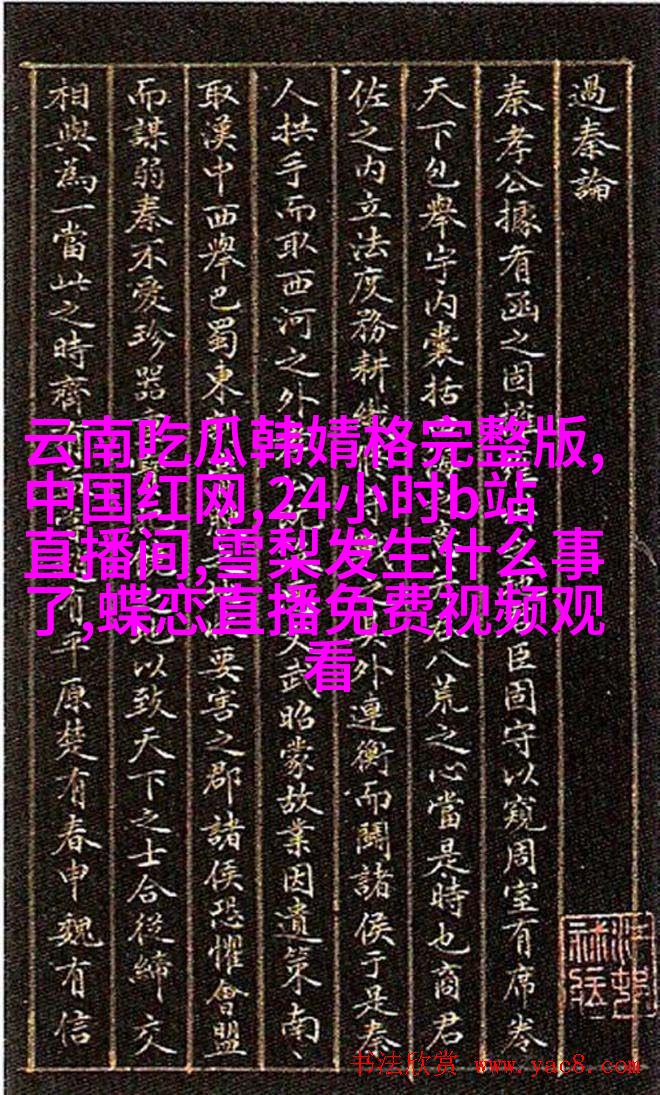 過秦論
秦孝公據有函之固 臣固守以窺周室有席卷
天下包舉宇内囊括 八荒之心當是時也商君
佐之内立法度務耕 外連衡而鬭諸侯于是秦
人拱手而取西河之外 武昭蒙故業因遺策南、
取漢中西舉巴蜀東 要害之郡諸侯恐懼會盟
而謀弱秦不愛珍器 以致天下之士合從締交
相與為一當此之時齊 原楚有春申魏有信
云南吃瓜韩婧格完整版,
中国红网,24小时b站
直播间,雪梨发生什么事
了,蝶恋直播免费视频观
看
书法欣赏 www.yac8.com